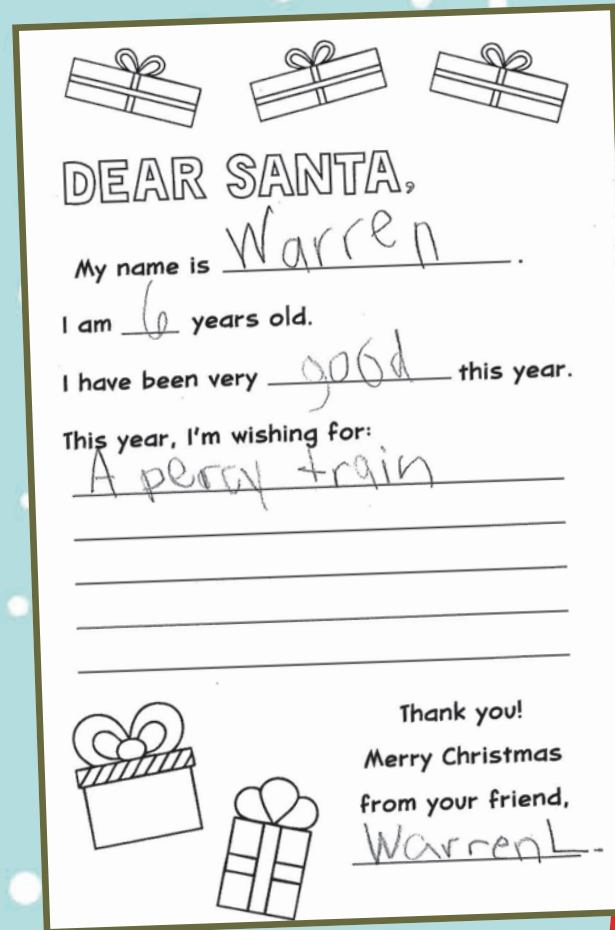 DEAR SANTA,
My name is Warren.
I am 6 years old.
I have been very good this year.
This year, I'm wishing for:
A percy train
Thank you!
Merry Christmas
from your friend,
Warren L.